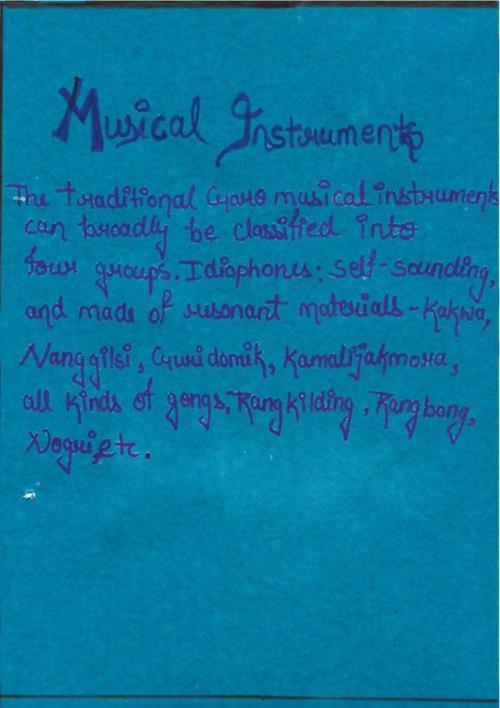 Musical Instruments
The traditional Garo musical instruments
can broadly be classified into
four groups. Idiophones: self-sounding,
and made of resonant materials - Kakwa,
Nanggilsi, Guridomik, Kamaljakmora,
all kinds of gongs, Rangkilding, Rangbong,
Nogri, etc.